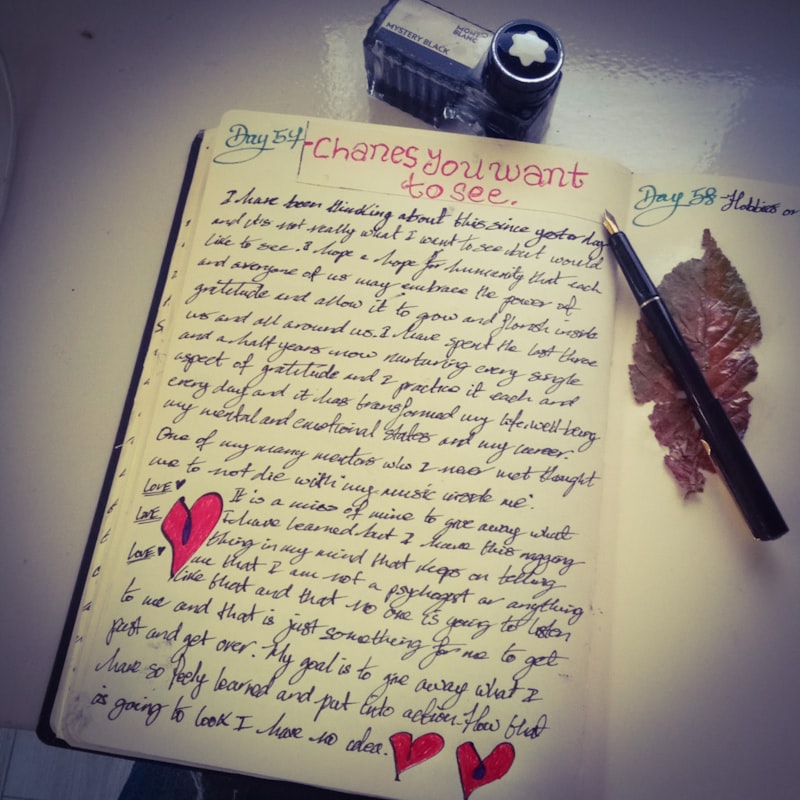 MONT
BLANC
MYSTERY BLACK
Day 57
Chanes You want
to see.
I have been thinking about this since yesterday
and it's not really what I want to see but would
like to see. I hope a hope for humanity that each
and everyone of us may embrace the power of
gratitude and allow it to grow and florish inside
us and all around us. I have spent the last three
and a half years now nurturing every single
aspect of gratitude and I practice it each and
every day and it has transformed my life, well-being
my mental and emotional states and my career.
One of my many mentors who I never met thought
me to not die with "my music inside me".
LOVE ♥
LOVE
LOVE ♥
It is a miss of mine to give away what
I have learned but I have this nagging
thing in my mind that keeps on telling
me that I am not a psychogist or anything
like that and that no one is going to listen
to me and that is just something for me to get
past and get over. My goal is to give away what I
have so feely learned and put into action. How that
is going to look I have no idea.
Day 58 - Hobbies or